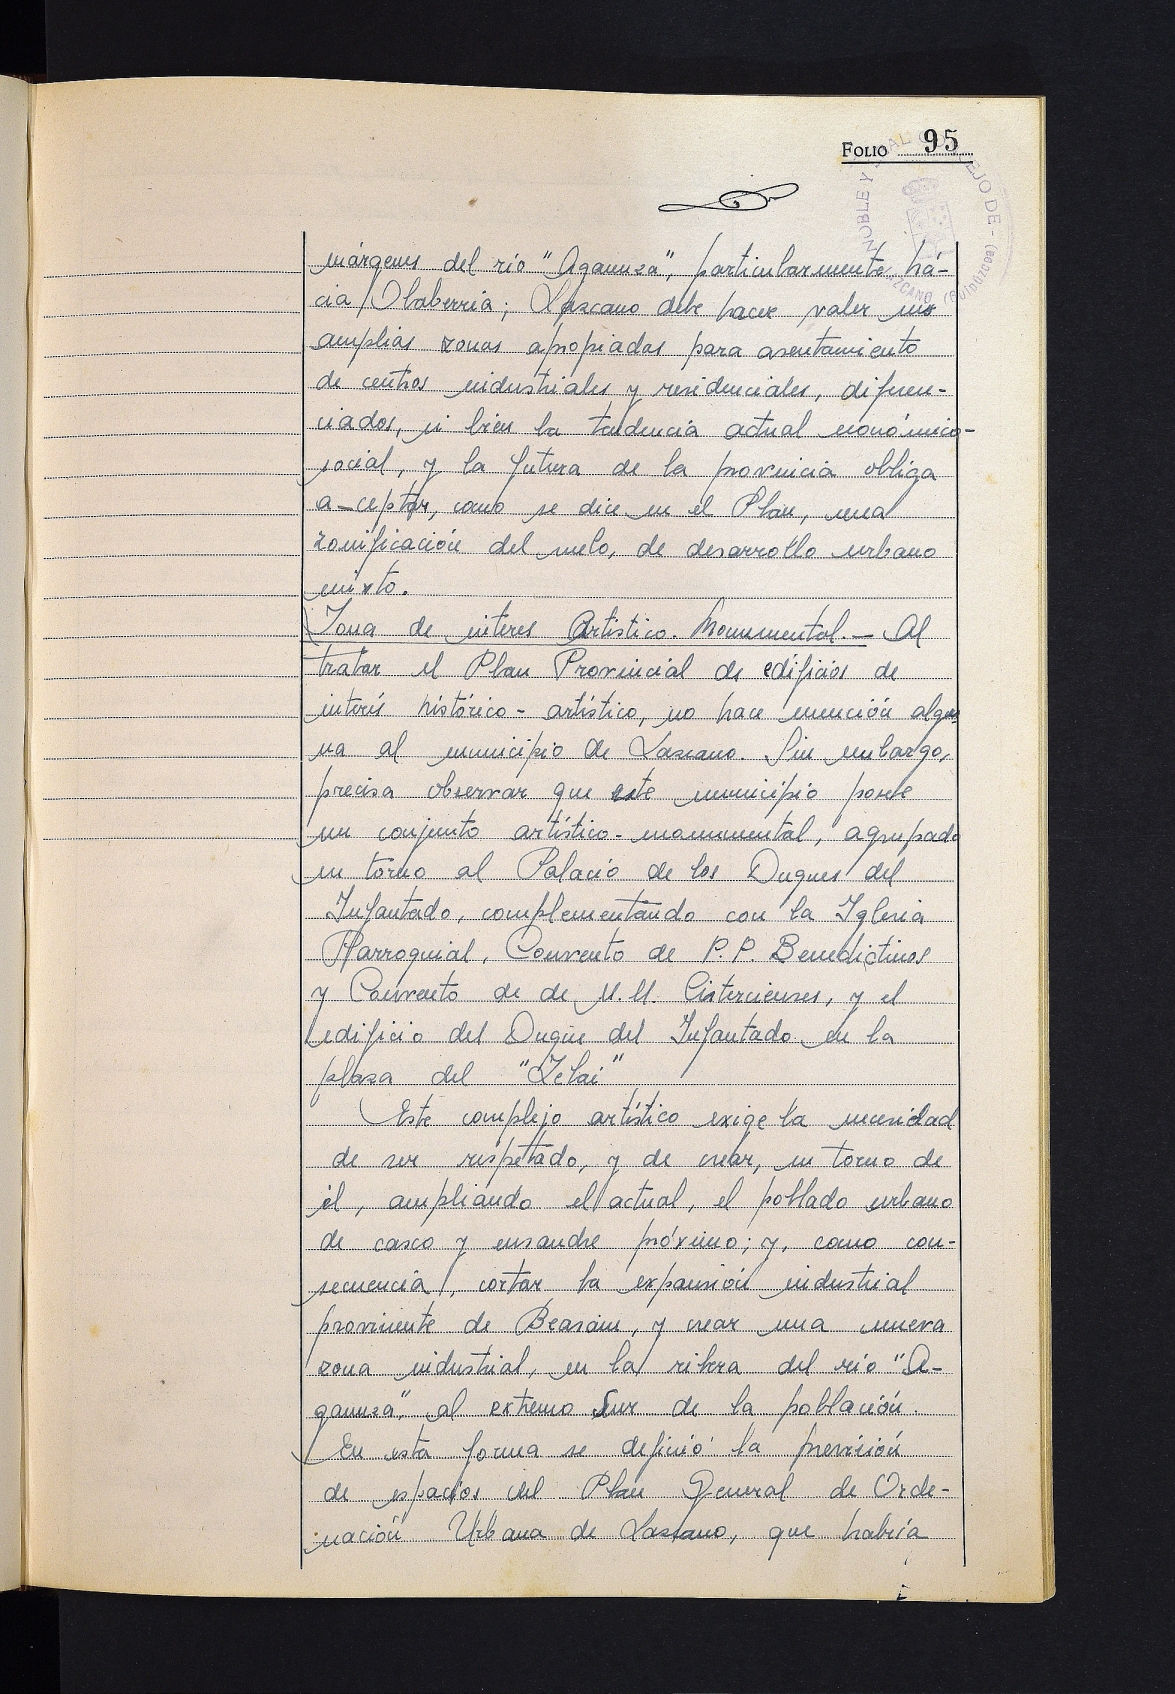 FOLIO 95
NOBLE Y LEAL CONCEJO DE - LAZCANO (Guipúzcoa)
márgenes del río "Agaunza", particularmente há-
cia Olaberria; Lazcano debe hacer valer sus
amplias zonas apropiadas para asentamiento
de centros industriales y residenciales, diferen-
ciados, si bien la tendencia actual económico-
social, y la futura de la provincia obliga
a-ceptar, como se dice en el Plan, una
zonificación del suelo, de desarrollo urbano
mixto.
Zona de interes Artístico. Monumental.- Al
tratar el Plan Provincial de edificios de
interés histórico-artístico, no hace mención algu-
na al municipio de Lazcano. Sin embargo,
precisa observar que este municipio posee
un conjunto artístico-monumental, agrupado
en torno al Palacio de los Duques del
Infantado, complementando con la Iglesia
Parroquial, Convento de P.P. Benedictinos
y Convento de de M.M. Cistercienses, y el
edificio del Duque del Infantado en la
plaza del "Zelai"
Este complejo artístico exige la necesidad
de ser respetado, y de crear, en torno de
él, ampliando el actual, el poblado urbano
de casco y ensanche próximo; y, como con-
secuencia, cortar la expansión industrial
proviniente de Beasain, y crear una nueva
zona industrial, en la ribera del río "A-
gaunza", al extremo Sur de la población.
En esta forma se definió la previsión
de espacios del Plan General de Orde-
nación Urbana de Lazcano, que habría